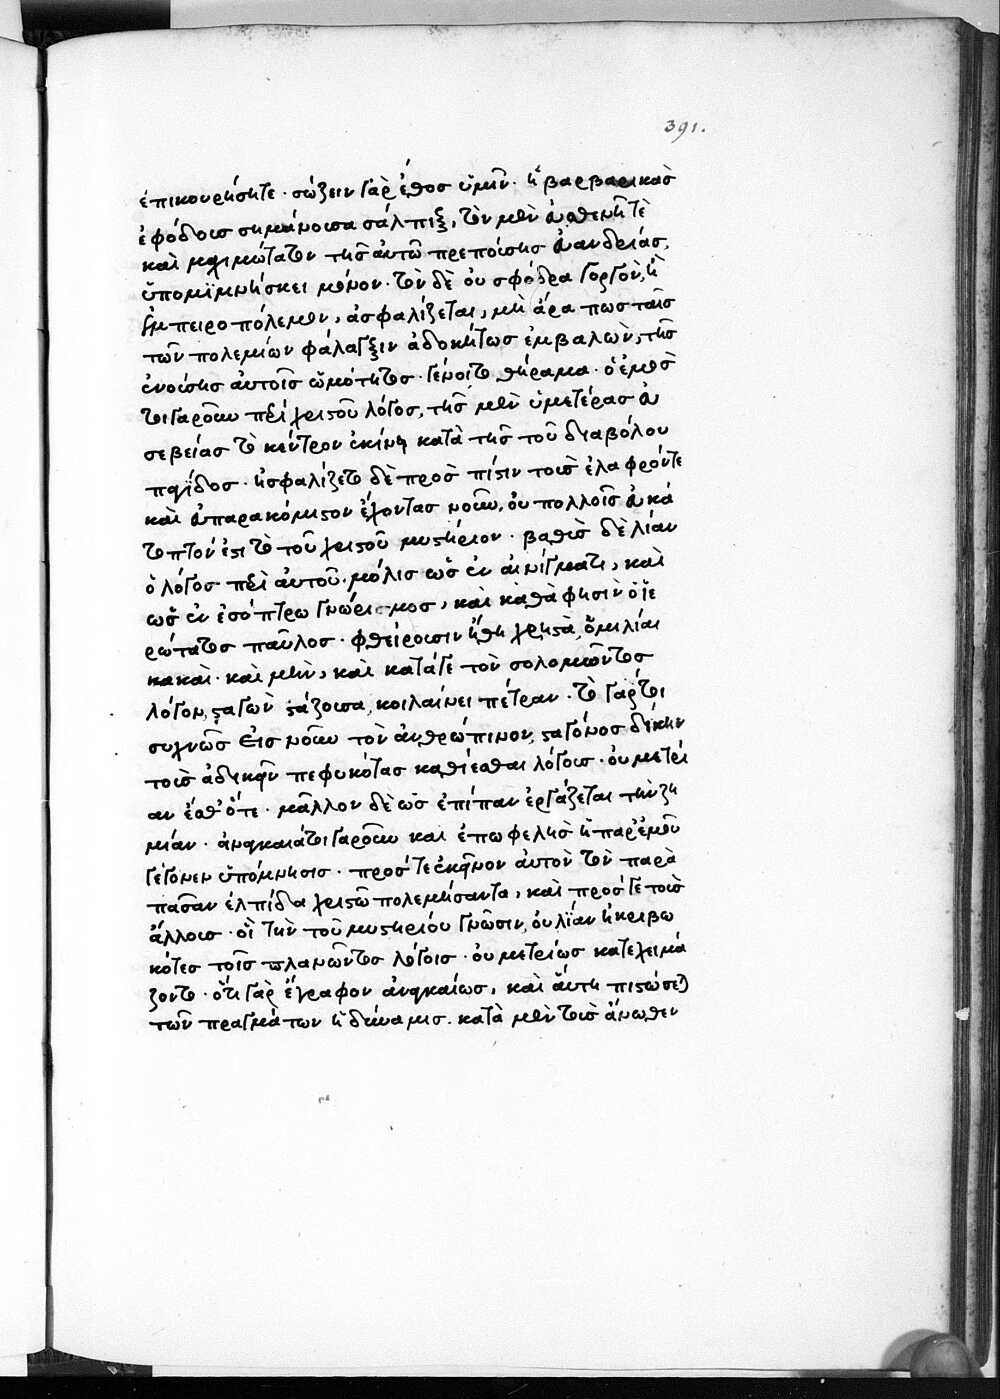 391.
ἐπικουρήσητε · σώζειν γὰρ ἔθος ὑμῖν · ἡ βαρβαρικὰσ
ἐφόδους σημαίνουσα σάλπιξ, τὸν μὲν εὐσθενῆ τὲ
καὶ μαχιμώτατον τῆς αὐτῶ πρεπούσης εὐανδρίας,
ὑπομιμνήσκει μόνον · τὸν δὲ οὐ σφόδρα γοργὸν, ἢ
ἐμπειροπόλεμον, ἀσφαλίζεται, μὴ ἄρα πως ταῖς
τῶν πολεμίων φάλαγξιν ἀδοκήτως ἐμβαλὼν, τῆς
ἐνούσης αὐτοῖς ὠμότητος · γένοιτο θήραμα · ὁ ἐμὸς
τοιγαροῦν περὶ χριστοῦ λόγος, τῆς μὲν ὑμετέρας εὐ
σεβείας τὸ κέντρον ἐκίνει κατὰ τῆς τοῦ διαβόλου
παγίδος · ἠσφαλίζετο δὲ πρὸς πίστιν τοὺς ἐλαφρόν τε
καὶ εὐπαρακόμιστον ἔχοντας νοῦν, οὐ πολλοῖς εὐκά
τοπτόν ἐστι τὸ τοῦ χριστοῦ μυστήριον · βαθὺς δὲ λίαν
ὁ λόγος περὶ αὐτοῦ · μόλις ὡς ἐν αἰνίγματι, καὶ
ὡς ἐν ἐσόπτρω γνώριμος, καὶ καθά φησιν ὁ ἱε
ρώτατος παῦλος · φθείρουσιν ἤθη χρηστὰ, ὁμιλίαι
κακαί · καὶ μὴν, καὶ κατά γε τὸν σολομῶντος
λόγον, σταγὼν στάζουσα, κοιλαίνει πέτραν · τὸ γάρ τοι
συχνῶς εἰς νοῦν τὸν ἀνθρώπινον, σταγόνος δίκην
τοὺς ἀδικεῖν πεφυκότας καθίεσθαι λόγους · οὐ μετρί
αν ἔσθ' ὅτε · μᾶλλον δὲ ὡς ἐπίπαν ἐργάζεται τὴν ζη
μίαν · ἀναγκαιάτοιγαροῦν καὶ ἐπωφελὴς ἡ παρ' ἐμοῦ
γέγονεν ὑπόμνησις · πρός τε ἐκεῖνον αὐτὸν τὸν παρὰ
πᾶσαν ἐλπίδα χριστῶ πολεμήσαντα, καὶ πρός γε τοὺς
ἄλλους · οἳ τὴν τοῦ μυστηρίου γνῶσιν, οὐ λίαν ἠκριβω
κότες τοῖς πλανῶντος λόγοις · οὐ μετρίως κατεχειμά
ζοντο · ὅτι γὰρ ἔγραφον ἀναγκαίως, καὶ αὕτη πιστώσεται
τῶν πραγμάτων ἡ δύναμις · κατὰ μὲν τοὺς ἄνωθεν